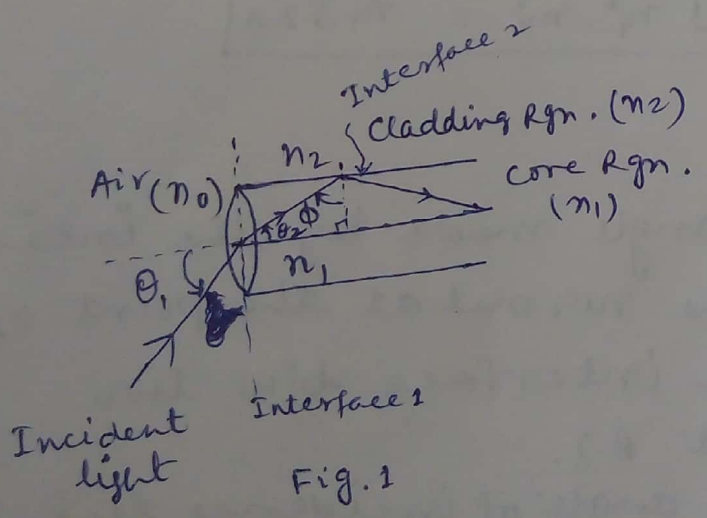 Interface 2
Cladding Rgn. (n2)
n2
Air (n0)
Core Rgn.
(n1)
θ2 Φ
n1
θ1
Interface 1
Incident
light
Fig. 1